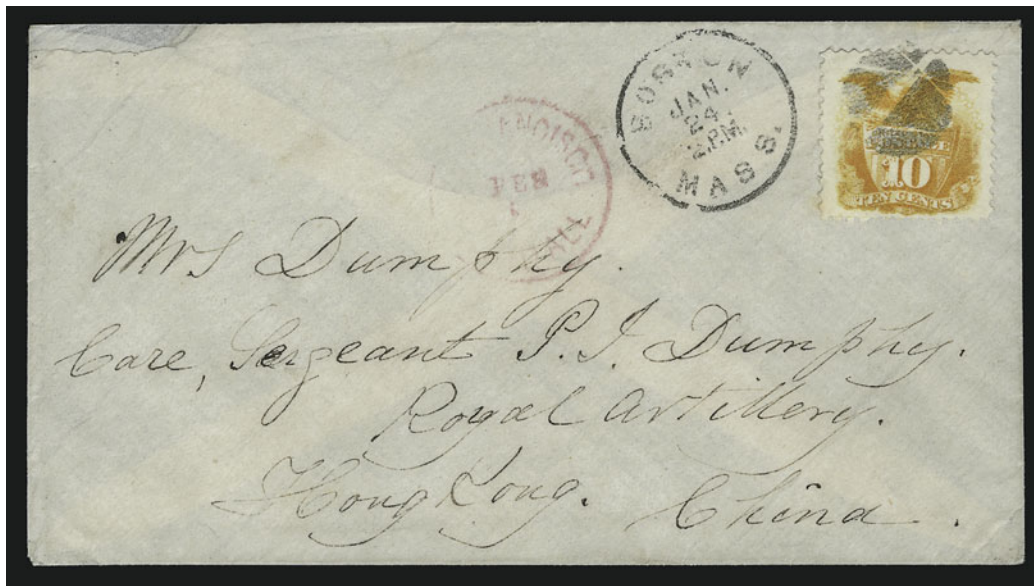 BOSTON
JAN.
24
2.P.M.
MASS.
10
TEN CENTS
Mrs Dumphy.
Care, Sergeant P. J. Dumphy.
Royal Artillery.
Hong Kong. China.